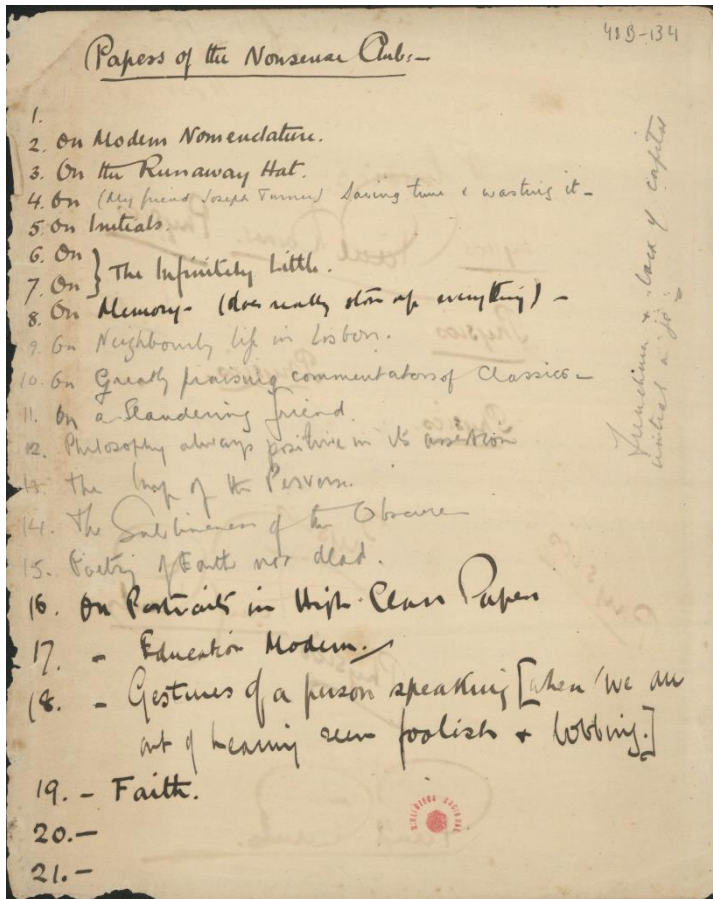 48B-134
Papers of the Nonsense Club:-
1.
2. On Modern Nomenclature.
3. On the Runaway Hat.
4. On (My friend Joseph Turner) Saving time & wasting it -
5. On Initials.
6. On
7. On } The Infinitely Little.
8. On Memory - (does really store up everything) -
9. On Neighbourly life in Lisbon.
10. On Greatly praising commentators of Classics -
11. On a Slandering friend.
12. Philosophy always positive in its assertion
13. The Imp of the Perverse.
14. The Sublimeness of the Obscure
15. Poetry of Earth not dead.
16. On Portraits in High-Class Papers
17. - Education Modern.
18. - Gestures of a person speaking [when we are
out of hearing seem foolish & .]
19. - Faith.
20. -
21. -
Frenchmen & lack of capital
initial in
BIBLIOTECA NACIONAL